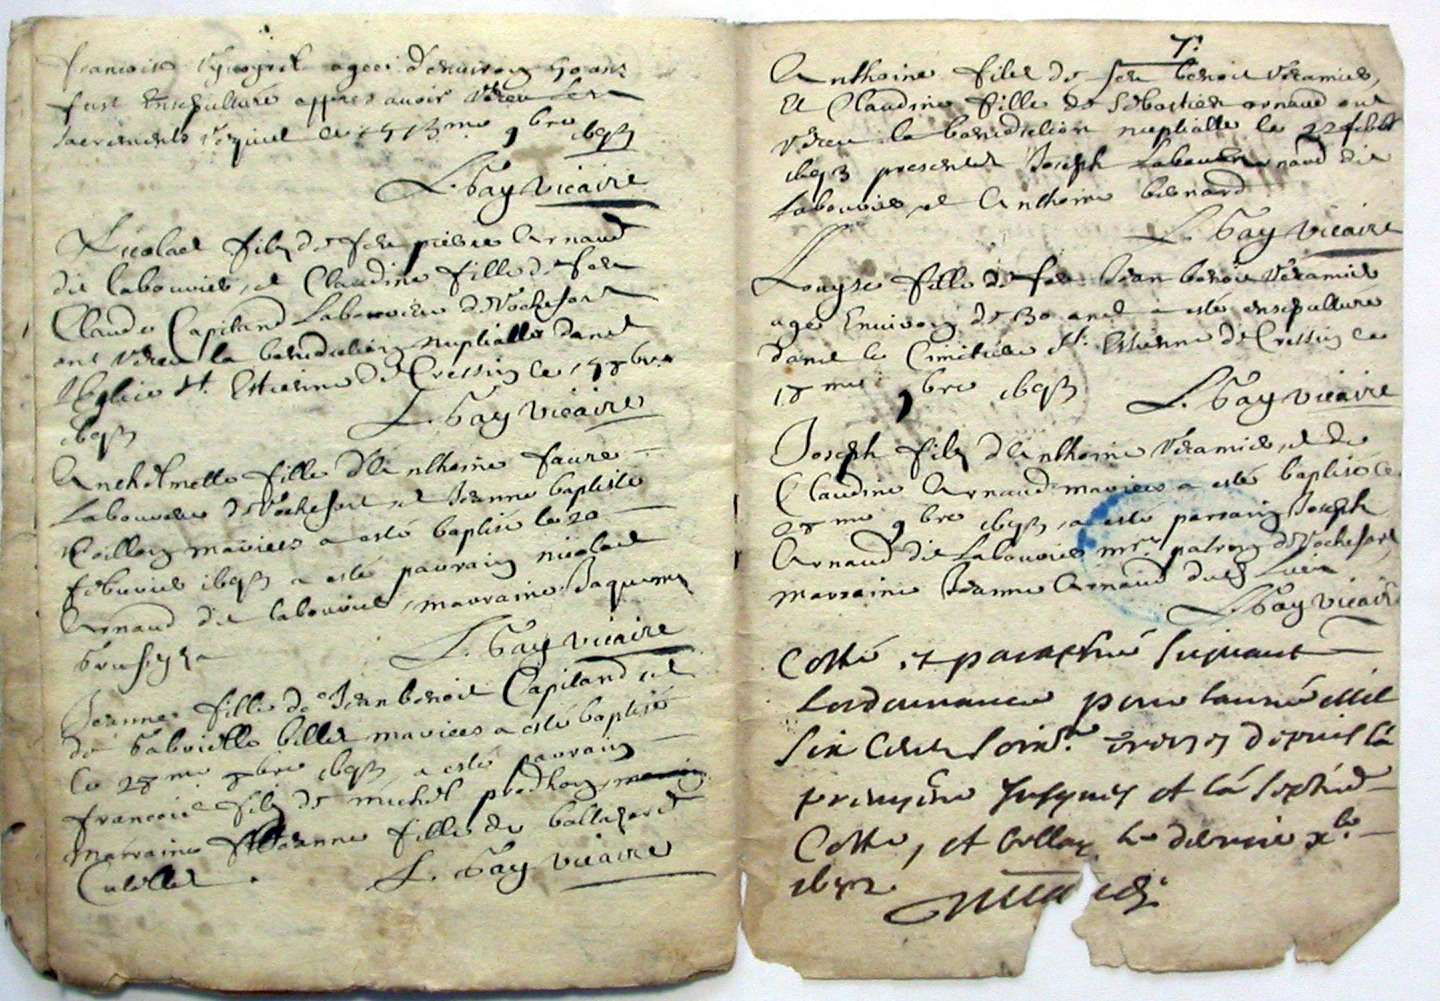 francoise agee d'environ 50 ans
fust ensepulture appres avoir receu les
sacrements requis le 13me 9bre 1693
L. Gay vicaire
Nicolas filz de feu pierre Arnaud
dit labouvier, et Claudine fille de feu
Claude Capitand Laboureur de Rochefort
ont receu la benediction nuptialle dans
l'Eglise St. Estienne de Cressin le 8bre
1693
L. Gay vicaire
Anthelmette fille d'Anthoine faure
Laboureur de Rochefort et Jeanne baptiste
mariees a esté baptisé le 20
febvrier 1693 a esté parrain nicolas
Arnaud dit labouvier, marraine Jaquema
L. Gay vicaire
Jeanne fille de Jean benoit Capitand et
de Gabrielle billet mariees a esté baptisé
le 28me 1693, a esté parrain
francois filz de michel prodhon
marraine Jeanne fille de baltazard
Cutillet.
L. Gay vicaire
7.
Anthoine filz de feu benoit
et Claudine fille de Sebastien arnaud ont
receu la benediction nuptialle le 22
1693 presents Joseph dit
labouvier, et Anthoine bernard
L. Gay vicaire
Louyse fille de feu Jean benoit
agé Environ de 30 ans a esté ensepulture
dans le Cimitiere St. Estienne de Cressin le
18me 9bre 1693
L. Gay vicaire
Joseph filz d'Anthoine et de
Claudine Arnaud mariees a esté baptisé le
28me 9bre 1693, a esté parrain Joseph
Arnaud dit Labouvier patron de Rochefort,
marraine Jeanne Arnaud
L. Gay vicaire
Cotté et paraphé suivant
Lordonnance pour lannée mil
six cents depuis la
premiere jusques et la septie
Cotte, et le dernier xbr
1692